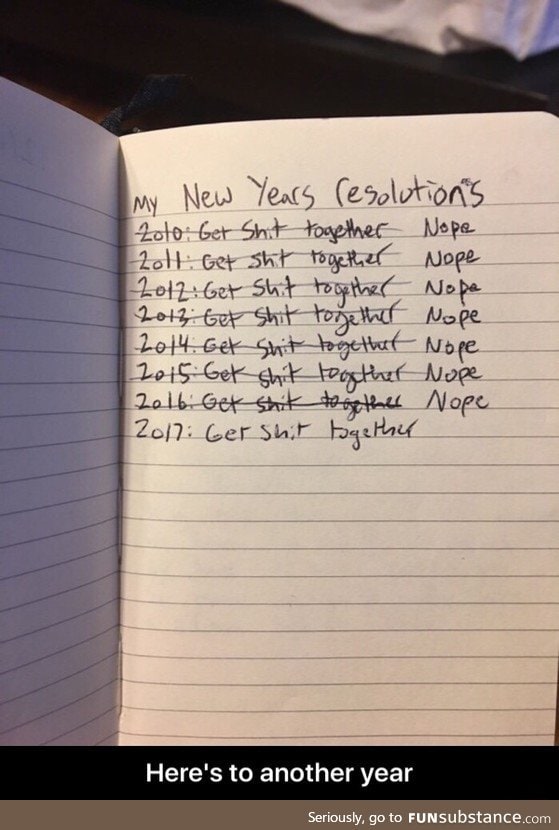 My New Years resolutions
2010: Get Shit together Nope
2011: Get shit together Nope
2012: Get Shit together Nope
2013: Get Shit together Nope
2014: Get Shit together Nope
2015: Get shit together Nope
2016: Get shit together Nope
2017: Get Shit together
Here's to another year
Seriously, go to FUNsubstance.com